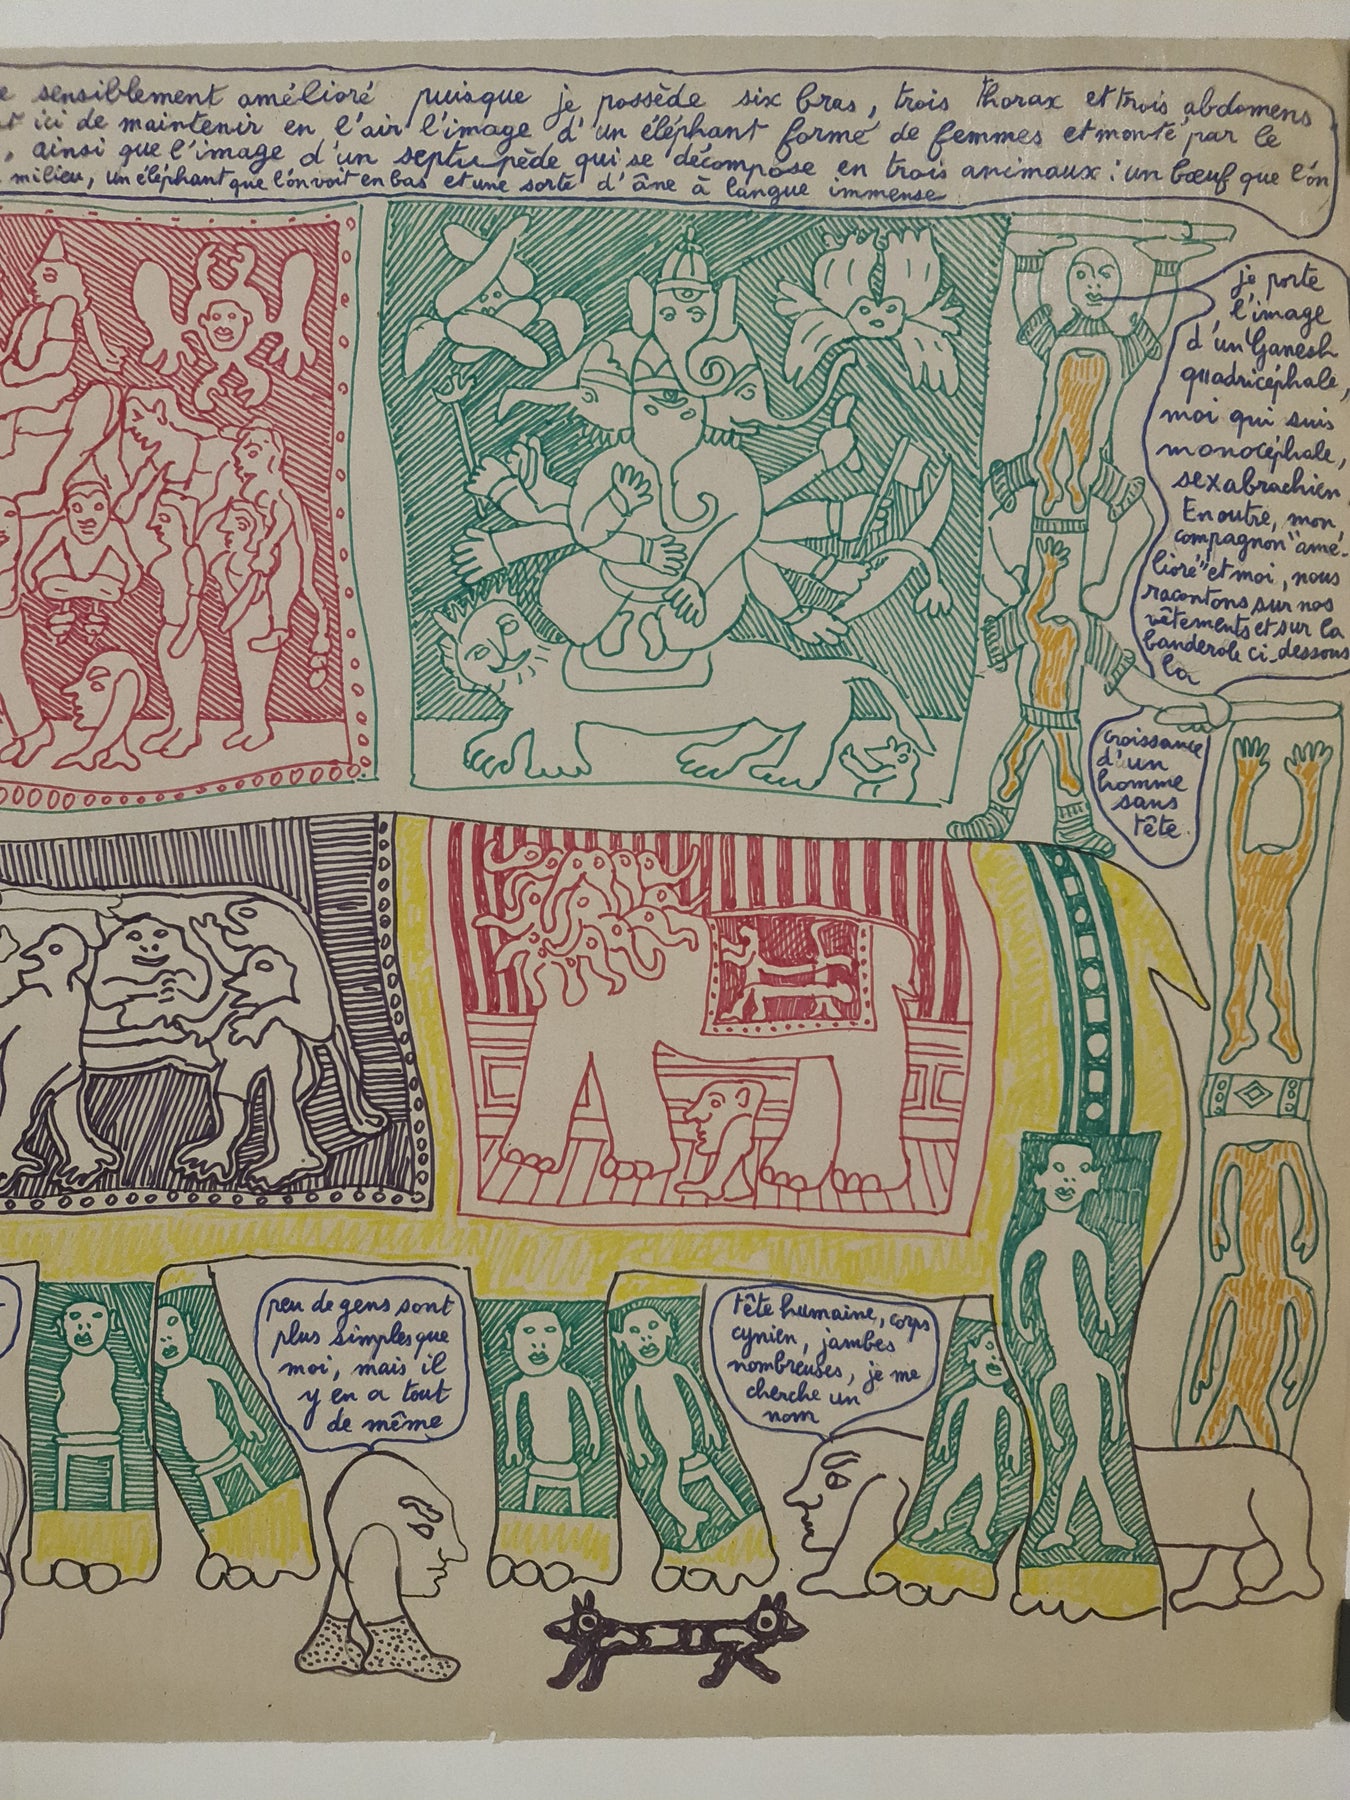 sensiblement amélioré puisque je possède six bras, trois thorax et trois abdomens
ici de maintenir en l'air l'image d'un éléphant formé de femmes et monté par le
, ainsi que l'image d'un septupède qui se décompose en trois animaux : un bœuf que l'on
milieu, un éléphant que l'on voit en bas et une sorte d'âne à langue immense
je porte
l'image
d'un Ganesh
quadricéphale,
moi qui suis
monocéphale,
sexabrachien
En outre, mon
compagnon "amé-
lioré" et moi, nous
racontons sur nos
vêtements et sur la
banderole ci-dessous
la
croissance
d'un
homme
sans
tête.
peu de gens sont
plus simples que
moi, mais il
y en a tout
de même
tête humaine, corps
cynien, jambes
nombreuses, je me
cherche un
nom